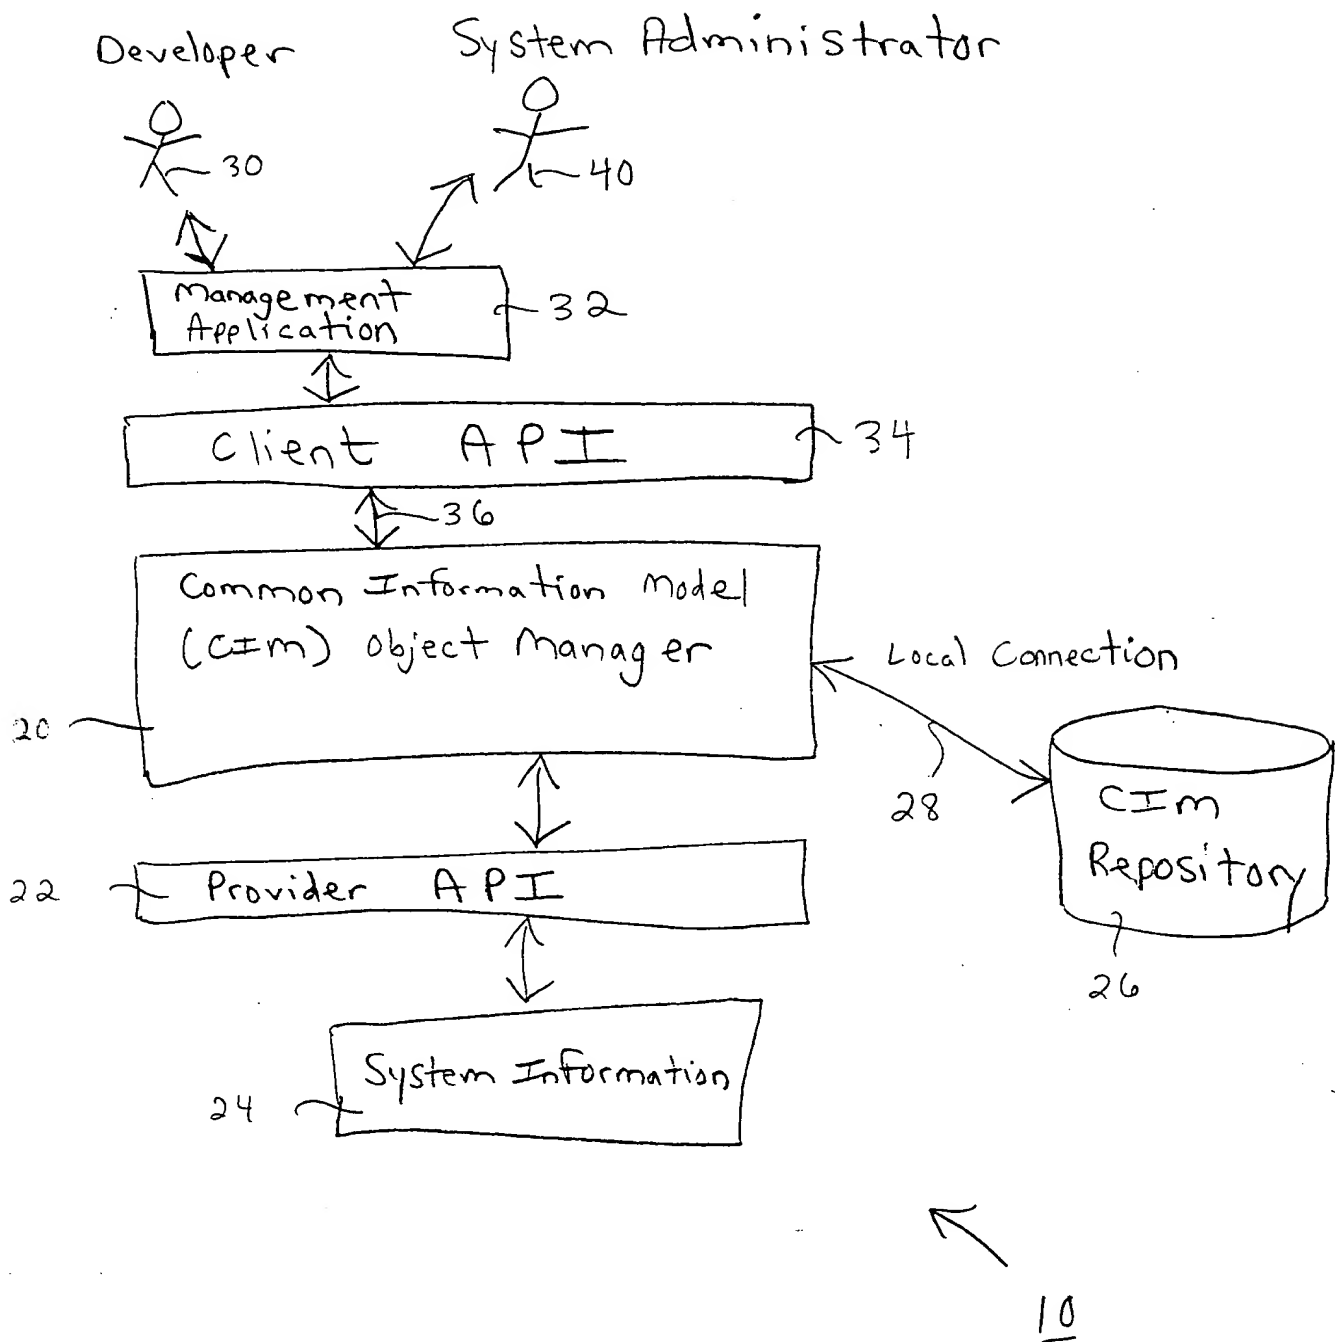 Developer
System Administrator
30
40
Management
Application
32
Client API
34
36
Common Information Model
(CIM) Object Manager
20
Local Connection
28
CIM
Repository
26
22
Provider API
System Information
24
10